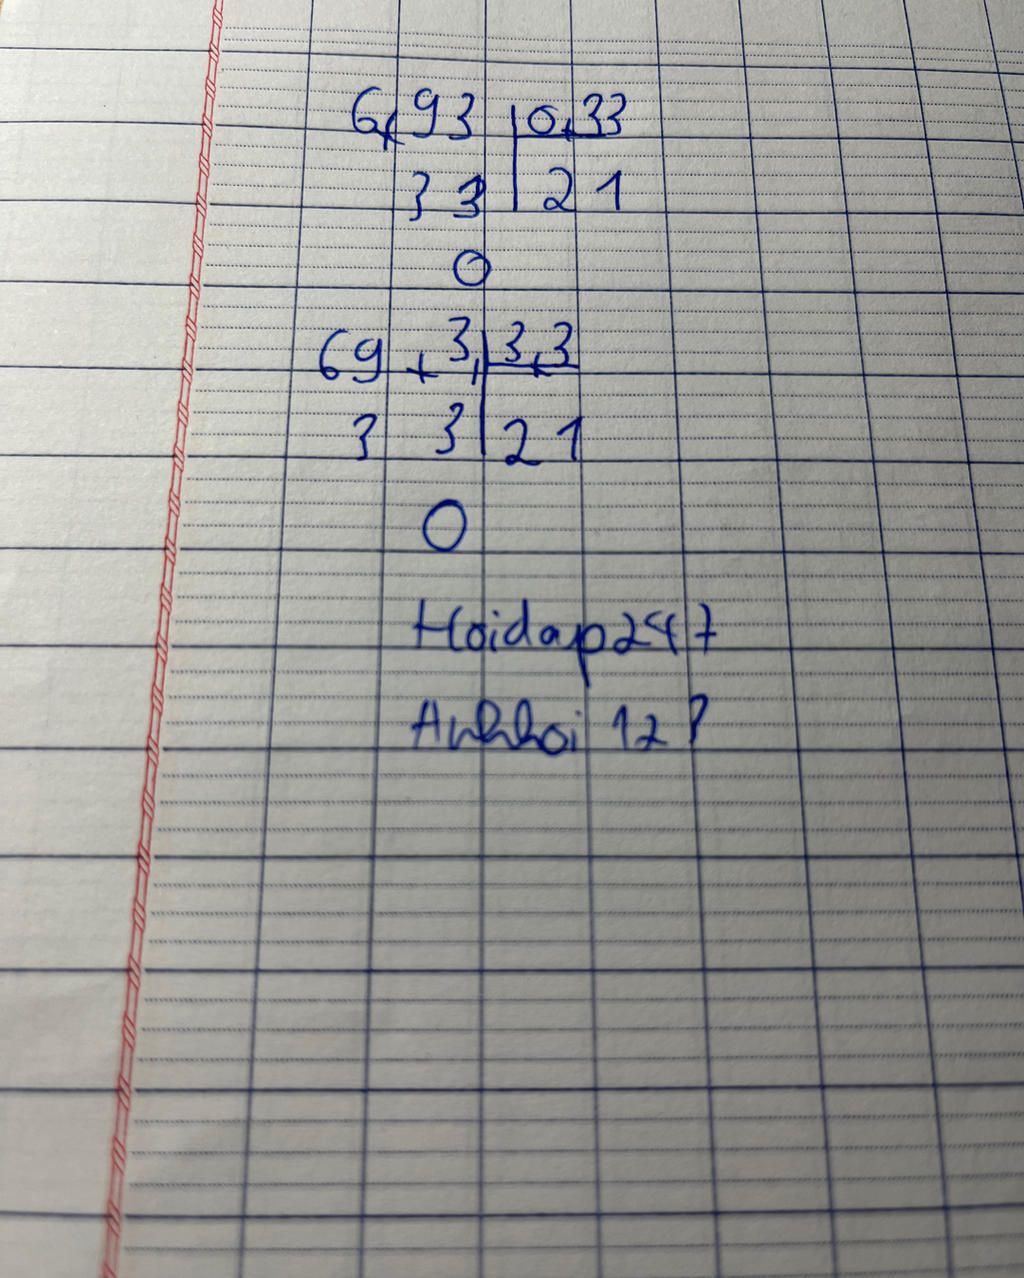 6,93 0,33
33 21
0
69,3 3,3
3 3 21
0
Hoidap247